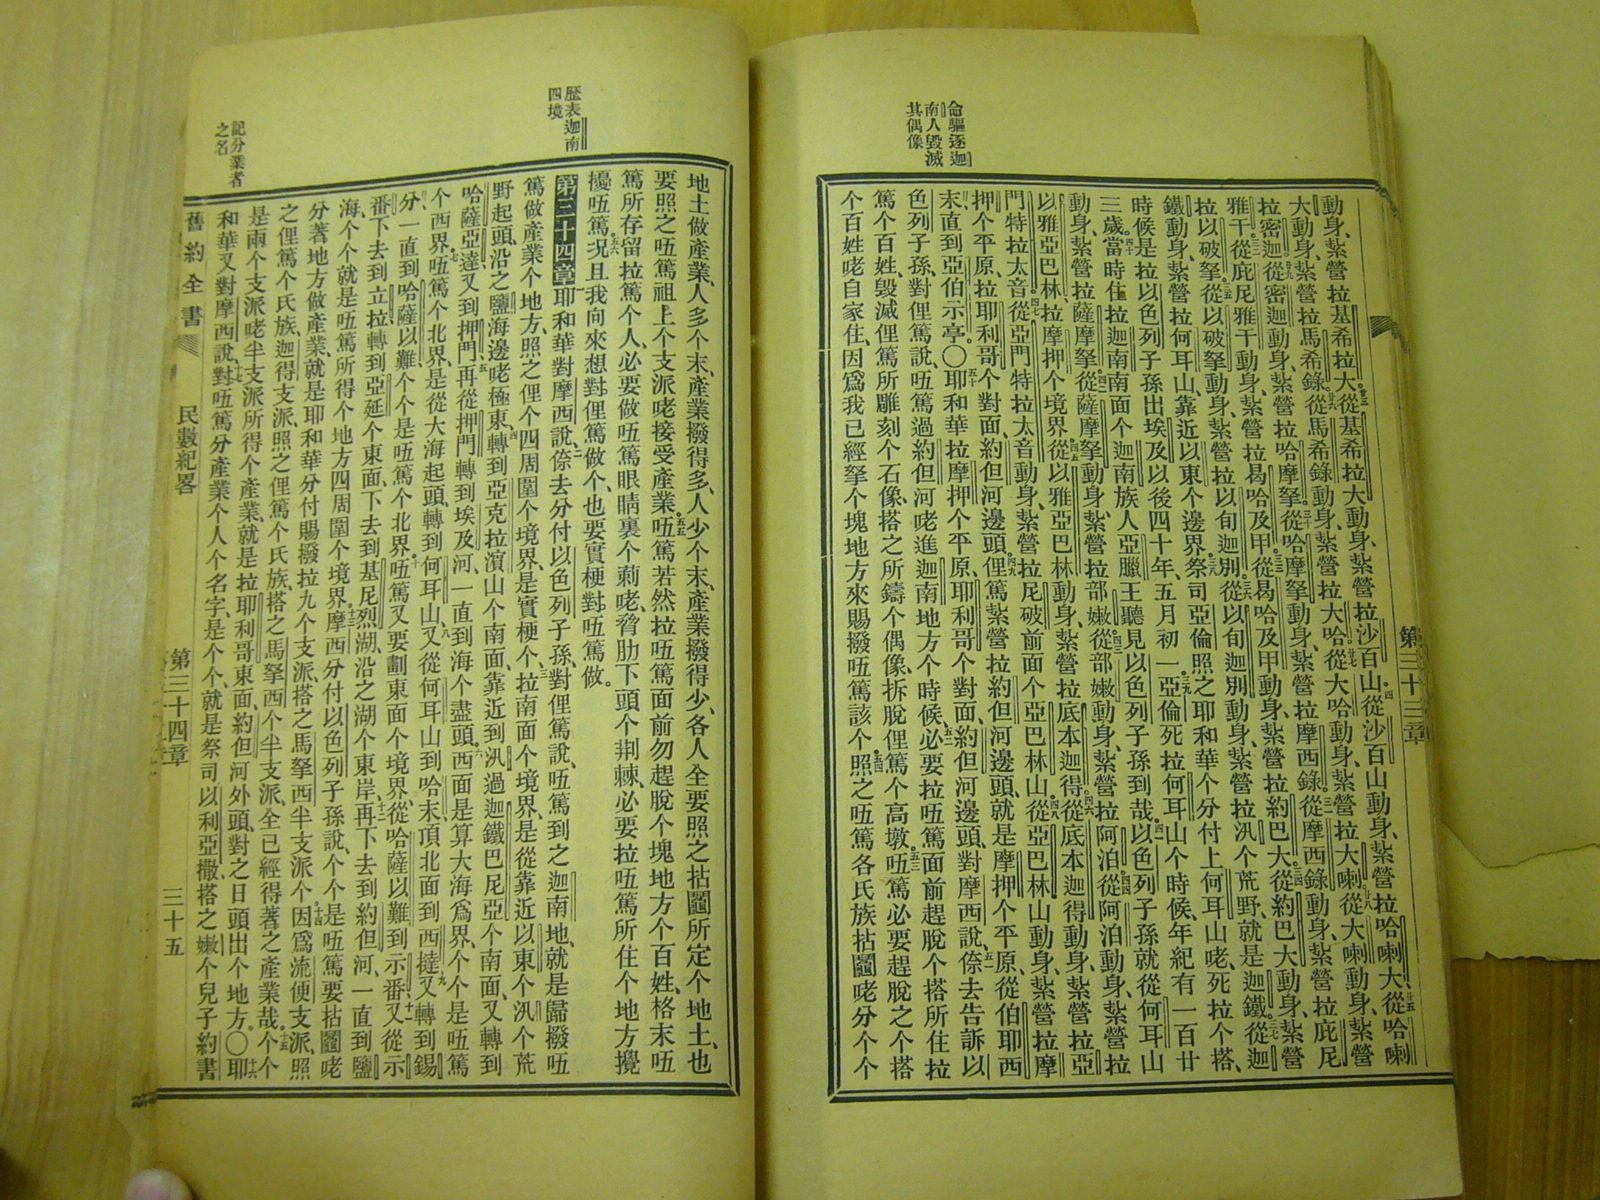 命驅逐迦
南人毀滅
其偶像
第三十三章
動身、紮營拉基希拉大從基希拉大動身、紮營拉沙百山從沙百山動身、紮營拉哈喇大從哈喇
大動身、紮營拉馬希錄從馬希錄動身、紮營拉大哈從大哈動身、紮營拉大喇從大喇動身、紮營
拉密迦從密迦動身、紮營拉哈摩拏從哈摩拏動身、紮營拉摩西錄從摩西錄動身、紮營拉庇尼
雅干從庇尼雅干動身、紮營拉曷哈及甲從曷哈及甲動身、紮營拉約巴大從約巴大動身、紮營
拉以破拏從以破拏動身、紮營拉以旬迦別從以旬迦別動身、紮營拉汛个荒野、就是迦鐵從迦
鐵動身、紮營拉何耳山、靠近以東个邊界、祭司亞倫照之耶和華个分付上何耳山咾死拉个搭、
時候是拉以色列子孫出埃及以後四十年、五月初一、亞倫死拉何耳山个時候、年紀有一百廿
三歲、當時住拉迦南南面个迦南族人亞臘王聽見以色列子孫到哉、以色列子孫就從何耳山
動身、紮營拉薩摩拏從薩摩拏動身、紮營拉部嫩從部嫩動身、紮營拉阿泊從阿泊動身、紮營拉
以雅亞巴林、拉摩押个境界從以雅亞巴林動身、紮營拉底本迦得從底本迦得動身、紮營拉亞
門特拉太音從亞門特拉太音動身、紮營拉尼破前面个亞巴林山從亞巴林山動身、紮營拉摩
押个平原、拉耶利哥个對面、約但河邊頭、俚篤紮營拉約但河邊頭、就是摩押个平原、從伯耶西
末直到亞伯示亭〇耶和華拉摩押个平原、耶利哥个對面、約但河邊頭、對摩西說、倷去告訴以
色列子孫、對俚篤說、㕶篤過約但河咾進迦南地方个時候、必要拉㕶篤面前趕脫个搭所住拉
篤个百姓、毀滅俚篤所雕刻个石像、搭之所鑄个偶像、拆脫俚篤个高墩、㕶篤必要趕脫之个搭
个百姓咾自家住、因爲我已經拏个塊地方來賜撥㕶篤該个、照之㕶篤各氏族拈鬮咾分个个
歷表迦南
四境
記分業者
之名
地土做產業、人多个末、產業撥得多、人少个末、產業撥得少、各人全要照之拈鬮所定个地土、也
要照之㕶篤祖上个支派咾接受產業、㕶篤若然拉㕶篤面前勿趕脫个塊地方个百姓、格末㕶
篤所存留拉篤个人、必要做㕶篤眼睛裏个莿咾、脅肋下頭个荆棘、必要拉㕶篤所住个地方攪
擾㕶篤、况且我向來想對俚篤做个、也要實梗對㕶篤做。
第三十四章 耶和華對摩西說、倷去分付以色列子孫、對俚篤說、㕶篤到之迦南地、就是歸撥㕶
篤做產業个地方、照之俚个四周圍个境界、是實梗个、拉南面个境界、是從靠近以東个汛个荒
野起頭、沿之鹽海邊咾極東、轉到亞克拉濱山个南面、靠近到汛、過迦鐵巴尼亞个南面、又轉到
哈薩亞達、又到押門、再從押門轉到埃及河、一直到海个盡頭、西面是算大海爲界、个个是㕶篤
个西界、㕶篤个北界、是從大海起頭轉到何耳山、又從何耳山到哈末、頂北面到西撻、又轉到錫
分、一直到哈薩以難、个个是㕶篤个北界、㕶篤又要劃東面个境界、從哈薩以難到示番、又從示
番下去到立拉、轉到亞延个東面、下去到基尼烈湖、沿之湖个東岸、再下去到約但河、一直到鹽
海、个个就是㕶篤所得个地方四周圍个境界、摩西分付以色列子孫說、个个是㕶篤要拈鬮咾
分著地方做產業、就是耶和華分付賜撥拉九个支派、搭之馬拏西半支派个、因爲流便支派、照
之俚篤个氏族、迦得支派、照之俚篤个氏族、搭之馬拏西个半支派、全已經得著之產業哉、个个
是兩个支派咾半支派所得个產業、就是拉耶利哥東面、約但河外頭、對之日頭出个地方、〇耶
和華又對摩西說、對㕶篤分產業个人个名字、是个个、就是祭司以利亞撒、搭之嫩个兒子約書
舊約全書 民數紀畧 第三十四章 三十五